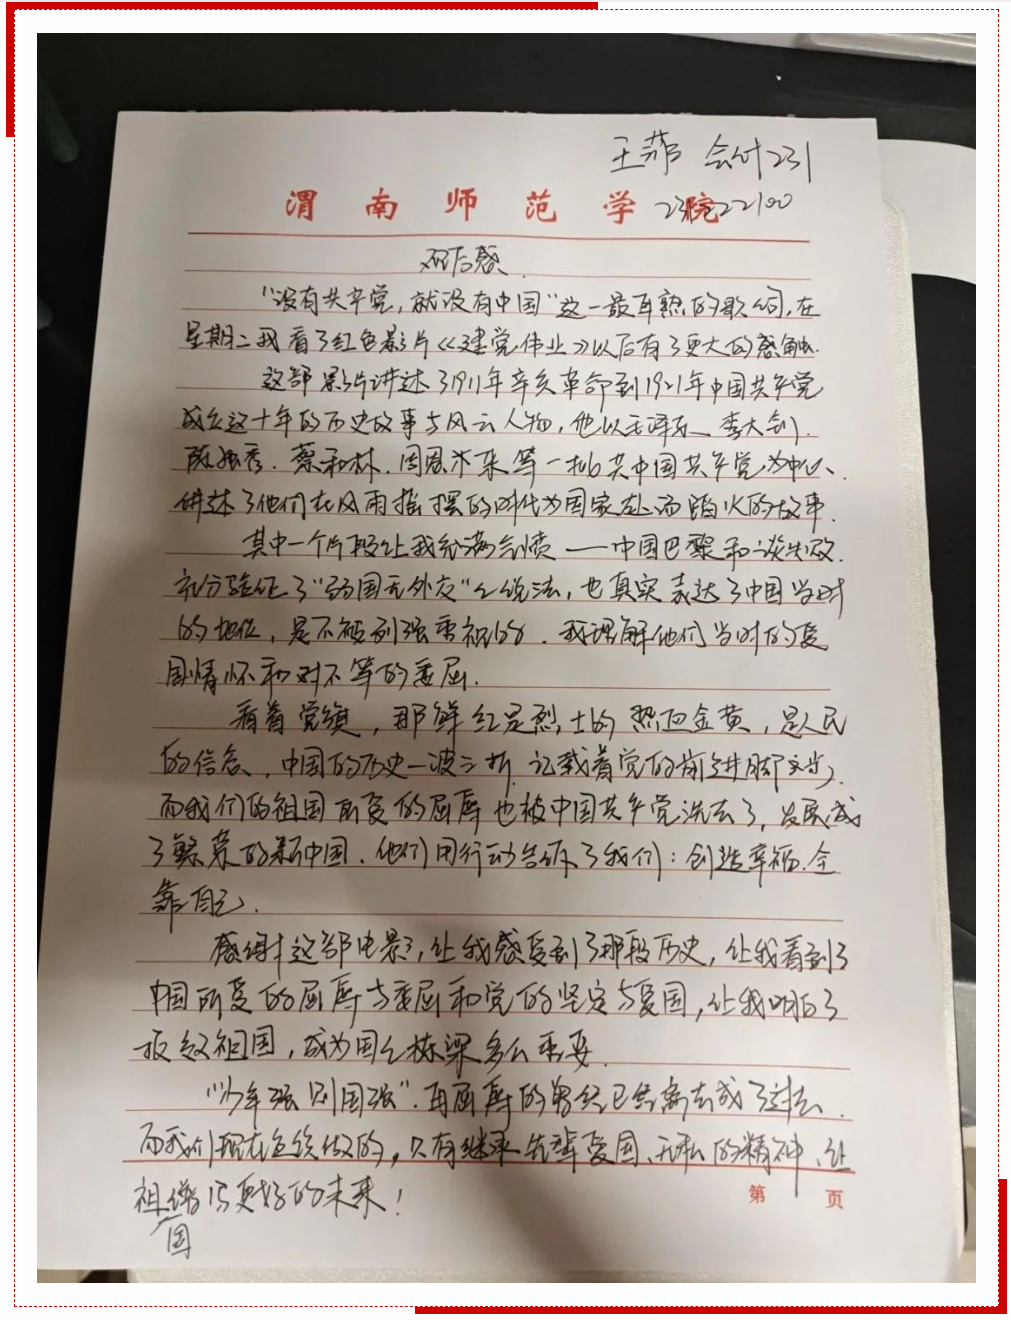 王 会计231
渭南师范学院 2322100
观后感
"没有共产党,就没有中国"这一最耳熟的歌词,在
星期二我看了红色影片《建党伟业》以后有了更大的感触.
这部影片讲述了1911年辛亥革命到1921年中国共产党
成立这十年的历史故事与风云人物,他以毛泽东、李大钊、
陈独秀、蔡和林、周恩来等一批共中国共产党为中心、
讲述了他们在风雨摇摆的时代为国家赴汤蹈火的故事.
其中一个片段让我充满气愤——中国巴黎和谈失败.
充分验证了"弱国无外交"之说法,也真实表达了中国当时
的地位,是不被列强重视的.我理解他们当时的爱
国情怀和对不等的委屈.
看着党旗,那鲜红是烈士的热血金黄,是人民
的信念,中国的历史一波三折,记载着党的前进脚步,
而我们的祖国所受的屈辱也被中国共产党洗去了,发展成
了繁荣的新中国.他们用行动告诉了我们:创造幸福.全
靠自己.
感谢这部电影,让我感受到了那段历史,让我看到了
中国所受的屈辱与委屈和党的坚定与爱国,让我明白了
报效祖国,成为国之栋梁多么重要.
"少年强则国强".再屈辱的曾经已经离去成了过去.
而我们现在应该做的,只有继承先辈爱国、无私的精神,让
祖国谱写更好的未来!
第 页